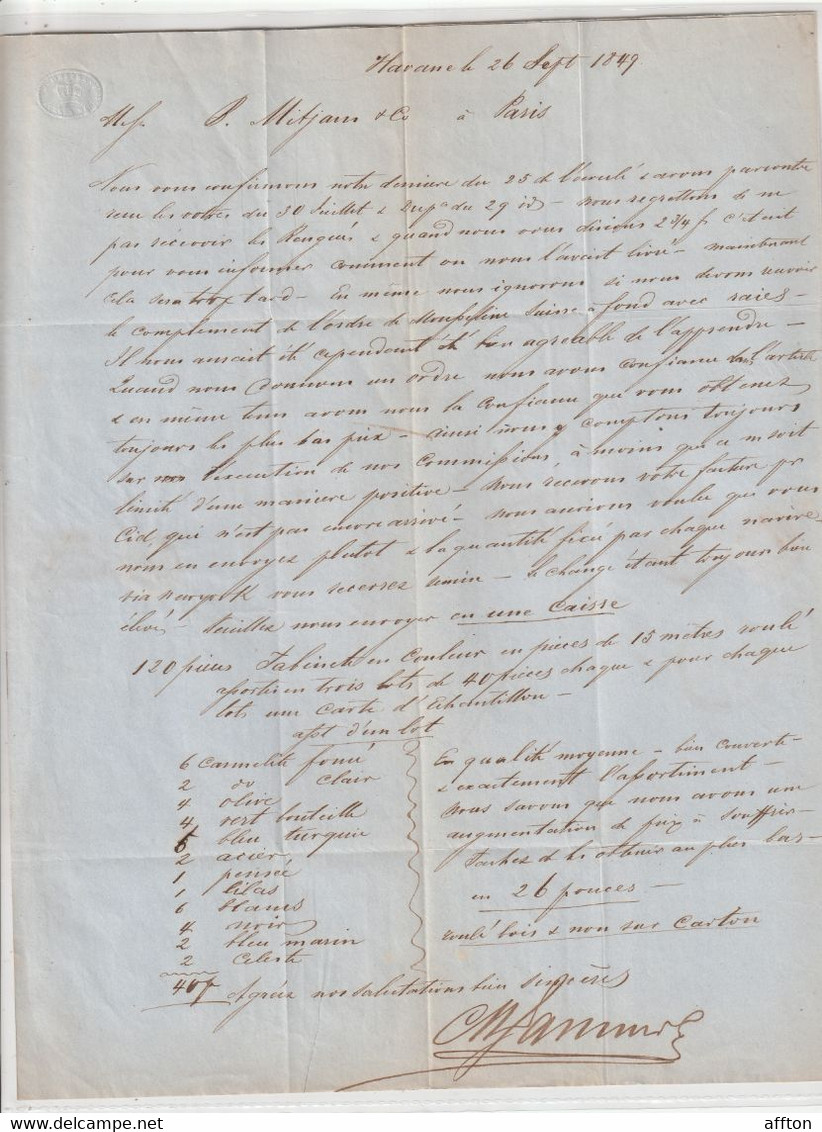 Havane le 26 Sept 1849
P. Mitjans & Co à Paris
Nous vous confirmons notre derniere du 25 de l'écoulé & avons parcontre
recu les votres du 30 Juillet & du 29 — nous regrettons de ne
pas recevoir les & quand nous vous disions 2 3/4 f c'etait
pour vous informer comment on nous l'avait livré — maintenant
cela sera trop tard — En même nous ignorons si nous devons recevoir
le complement de l'ordre de Mousseline Suisse à fond avec raies —
Il nous aurait été cependent agreable de l'apprendre —
Quand nous donnons un ordre nous avons confiance l'article
& en même tems avons nous la confiance que vous obtenez
toujours les plus bas prix — ainsi nous y comptons toujours
sur l'execution de nos Commissions, à moins que ce ne soit
limité d'une maniere positive — Nous recevons votre facture pr
Cid, qui n'est pas encore arrivé — nous aurions voulu que vous
nous en envoyez plutot & la quantité fixée par chaque navire —
via Newyork vous recevrez — le change étant toujours bien
élevé — Veuillez nous envoyer en une Caisse
120 pieces Tabinets en Couleur en pièces de 15 mètres roulé
assortis en trois lots de 40 pièces chaque & pour chaque
lots une Carte d'Echantillon —
asst d'un lot
6 Carmelite foncé
2 do clair
4 olive
4 vert bouteille
6 bleu turquie
2 acier
1 pensée
1 lilas
6 blancs
4 noir
2 bleu marin
2 Celeste
40 p
En qualité moyenne — bien couverte
& exactement l'assortiment —
Nous savons que nous avons une
augmentation de prix à souffrir
Tachez de les obtenir au plus bas —
en 26 pouces —
roulé bois & non sur Carton
Agréez nos salutations bien sincères
affton